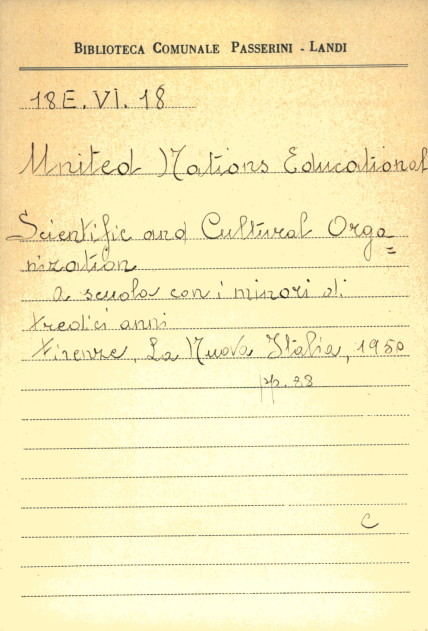 BIBLIOTECA COMUNALE PASSERINI - LANDI
18E. VI. 18
United Nations Educational
Scientific and Cultural Orga=
nization
a scuola con i minori di
tredici anni
Firenze, La Nuova Italia, 1950
pp. 23
C